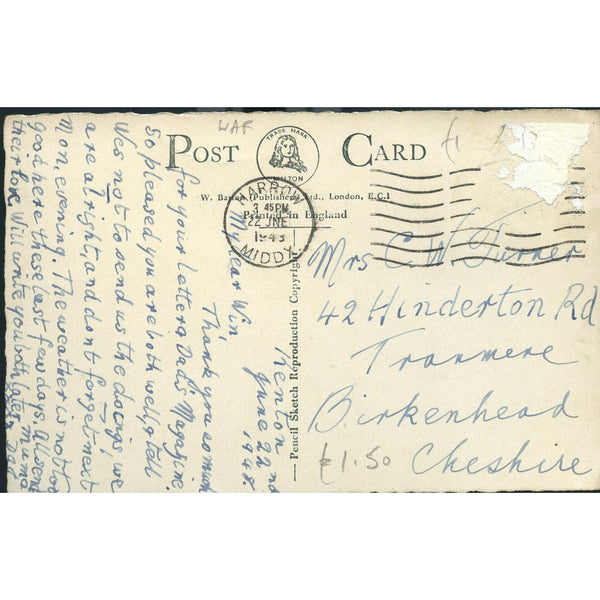 WAF
POST CARD
TRADE MARK
MILTON
W. Barton (Publisher) Ltd., London, E.C.1
Printed in England
HARROW
3 45 PM
22 JNE
1948
MIDDX.
£1.50
Pencil Sketch Reproduction Copyright
Mrs C. W. Turner
42 Hinderton Rd
Tranmere
Birkenhead
Cheshire
Kenton
June 22nd
1948.
My dear Win
Thank you so much
for your letter & Dads' Magazine.
So pleased you are both well, & tell
Wes not to send us the docings we
are alright, and don't forget next
Mon. evening. The weather is not too
good here these last few days. All send
their love. Will write you both later. Mum